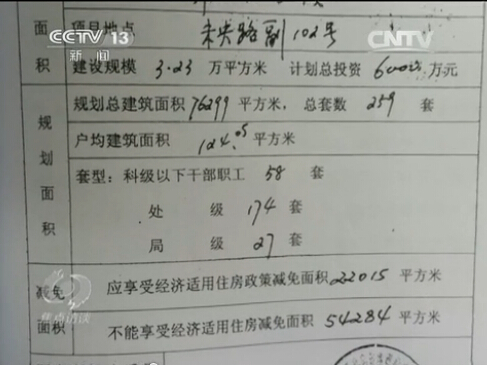 CCTV 13
新闻
CNTV
面
积
项目地点 未央路副102号
建设规模 3.23 万平方米 计划总投资 6000 万元
规
划
面
积
规划总建筑面积 76299 平方米，总套数 259 套
户均建筑面积 124.05 平方米
套型：科级以下干部职工 58 套
处 级 174 套
局 级 27 套
减免
面积
应享受经济适用住房政策减免面积 22015 平方米
不能享受经济适用住房减免面积 54284 平方米
焦点访谈